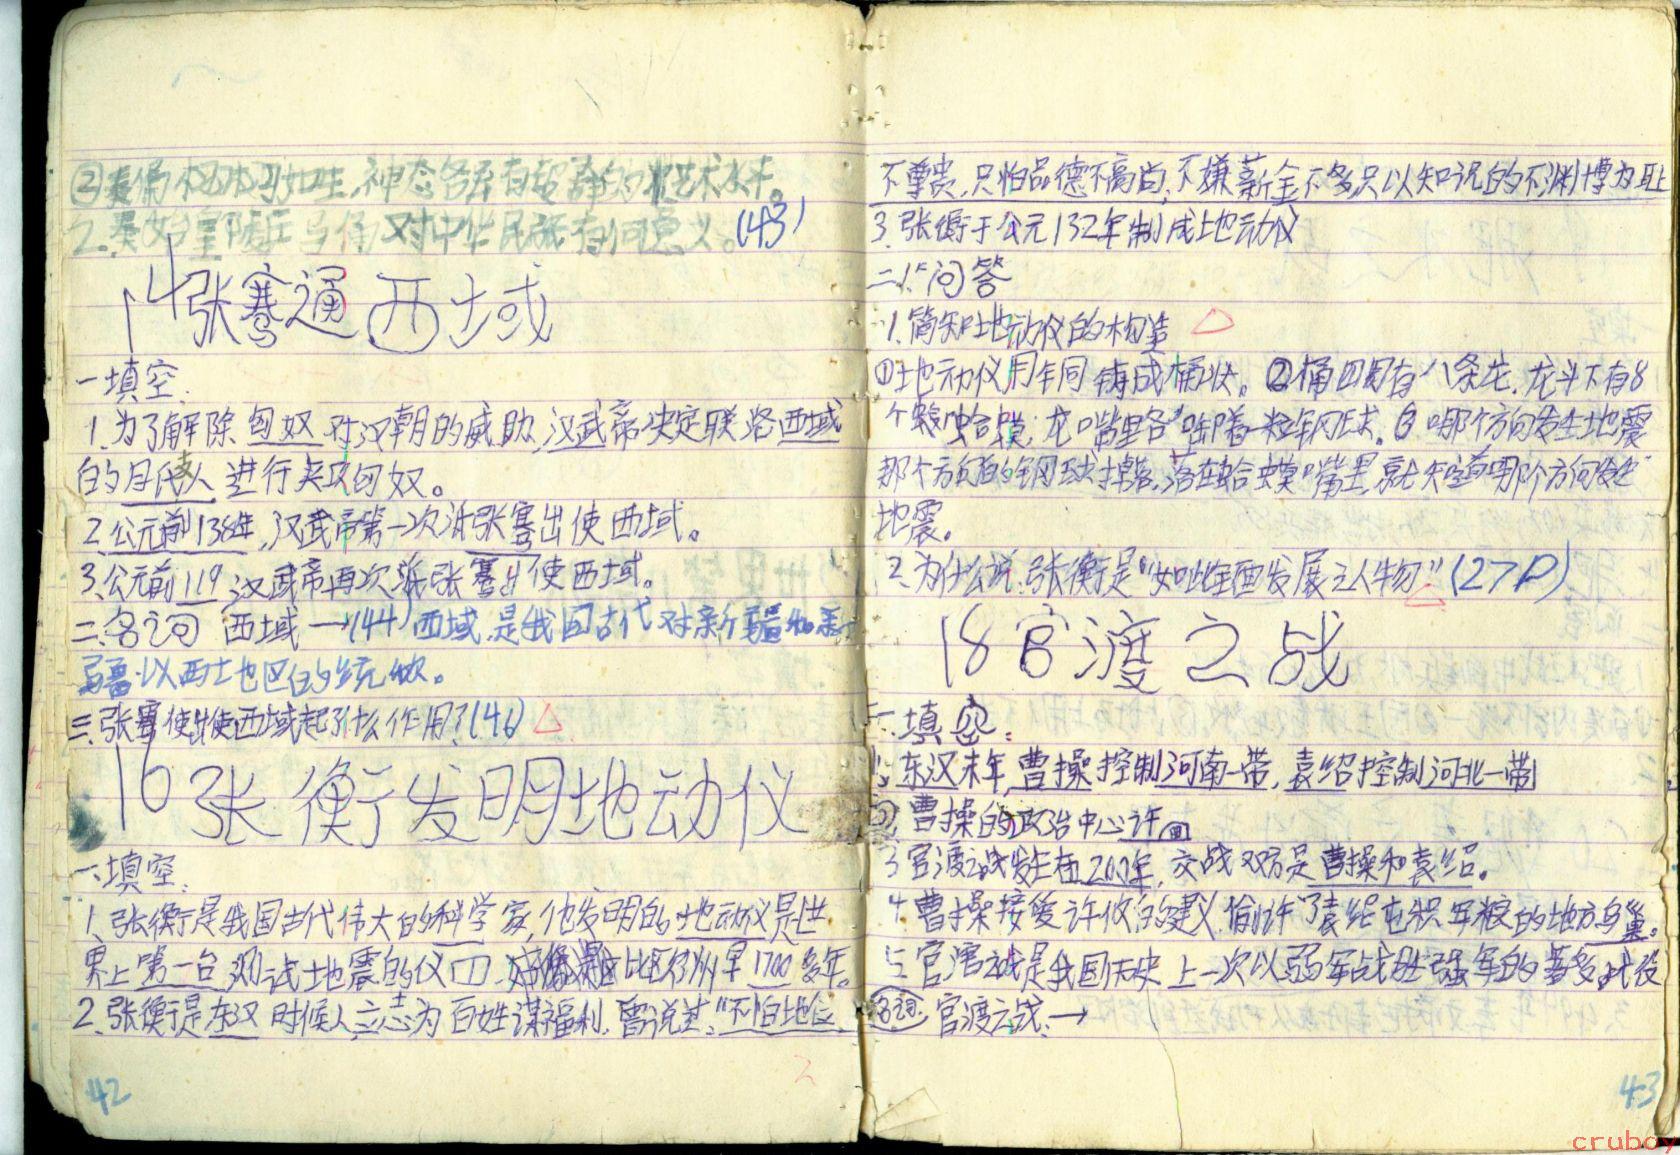 ②秦俑栩栩如生,神态各异有超群的艺术水平。
2.秦始皇陵兵马俑对中华民族有何意义。(43)
14张骞通西域
一填空.
1.为了解除匈奴对汉朝的威胁,汉武帝决定联络西域
的月氏人进行夹攻匈奴。
2.公元前138年,汉武帝第一次派张骞出使西域。
3.公元前119汉武帝再次派张骞出使西域。
二.名词 西域→(44)西域,是我国古代对新疆和新
疆以西土地区的统称。
三.张骞使出使西域起了什么作用?(46)
16张衡发明地动仪
一、填空:
1.张衡是我国古代伟大的科学家,他发明的地动仪是世
界上第一台测试地震的仪 比欧洲早1700多年。
2.张衡是东汉时候人立志为百姓谋福利,曾说过:“不怕地位
42
不尊贵,只怕品德不高尚,不嫌薪金不多只以知识的不渊博为耻
3.张衡于公元132年制成地动仪
二、问答
1.简知地动仪的构造
①地动仪用铜铸成桶状。②桶四周有八条龙,龙头下有8
个 蛤蟆;龙嘴里各 着一粒钢球。③哪个方向发生地震
那个方向的钢球掉落,落在蛤蟆嘴里,就知道哪个方向发生
地震。
2.为什么说:张衡是“如此全面发展之人物”(27P)
18官渡之战
一.填空:
1.东汉末年,曹操控制河南一带,袁绍控制河北一带
②曹操的政治中心许
3官渡之战发生在200年,交战双方是曹操和袁绍。
4.曹操接受许攸的建议,偷 了袁绍屯积军粮的地方乌巢。
5官渡之战是我国历史上一次以弱军战胜强军的著名战役
名词.官渡之战:→
43
cruboy